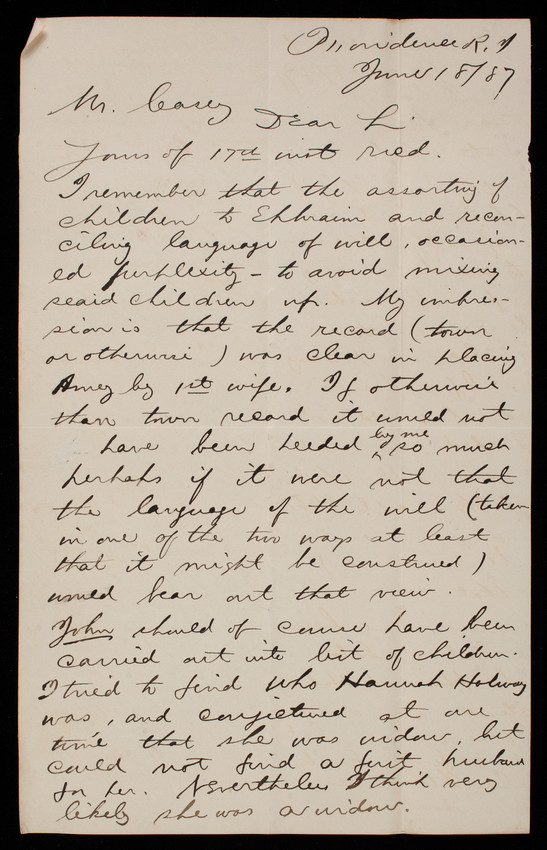 Providence R. I
June 18/87
Mr. Casey
Dear Sir
Yours of 17th inst recd.
I remember that the assorting of
children to Ephraim and recon-
ciling language of will, occasion-
ed perplexity - to avoid mixing
said children up. My impres-
sion is that the record (town
or otherwise) was clear in placing
Amey by 1st wife. If otherwise
than town record it would not
have been heeded by me so much
perhaps if it were not that
the language of the will (taken
in one of the two ways at least
that it might be construed)
would bear out that view.
John should of course have been
carried out into list of children.
I tried to find who Hannah Holway
was, and conjectured at one
time that she was widow, but
could not find a first husband
for her. Nevertheless I think very
likely she was a widow.